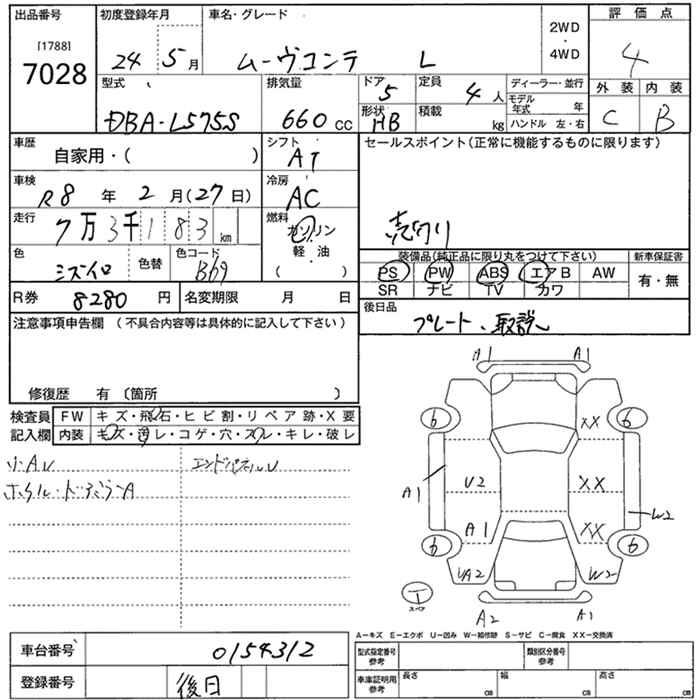 出品番号 初度登録年月 車名・グレード 評価点
[1788]
7028
24 5月 ムーヴコンテ L
2WD
・
4WD
4
型式 排気量 ドア 定員 ディーラー・並行 外装 内装
DBA-L575S 660cc 5 4人
モデル年式 年
形状 積載
HB kg ハンドル 左・右
C B
車歴 シフト セールスポイント(正常に機能するものに限ります)
自家用・( ) AT
車検 冷房
R8年2月(27日) AC
走行 燃料
7万3千183km ガソリン
軽・油
( )
売切り
色 色替 色コード
ミズイロ B69
装備品(純正品に限り丸をつけて下さい) 新車保証書
PS PW ABS エアB AW
SR ナビ TV カワ
有・無
R券 8280円 名変期限 月 日
後日品
プレート、取説
注意事項申告欄 (不具合内容等は具体的に記入して下さい)
修復歴 有 〔箇所 〕
検査員 FW キズ・飛石・ヒビ割・リペア跡・X要
記入欄 内装 キズ・汚レ・コゲ・穴・スレ・キレ・破レ
リ・AU エンドパネルU
A1 A1
6 XX 6
A1 U2 XX W2
A1 XX
6 6
UA2 W2
T
スペア
A2 A1
A−キズ E−エクボ U−凹み W−補修跡 S−サビ C−腐食 XX−交換済
車台番号 0154312
登録番号 後日
型式指定番号 参考 類別区分番号 参考
車庫証明用 参考 長さ cm 幅 cm 高さ cm